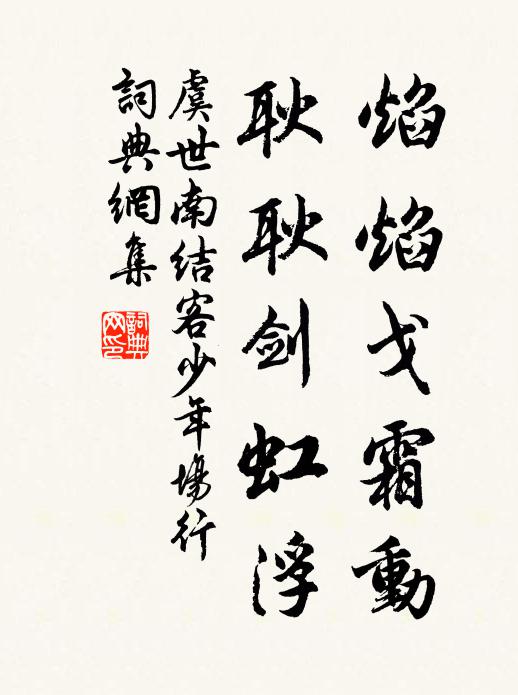 焰焰戈霜動
耿耿剑虹浮
虞世南结客少年場行
詞典網集
詞典網印